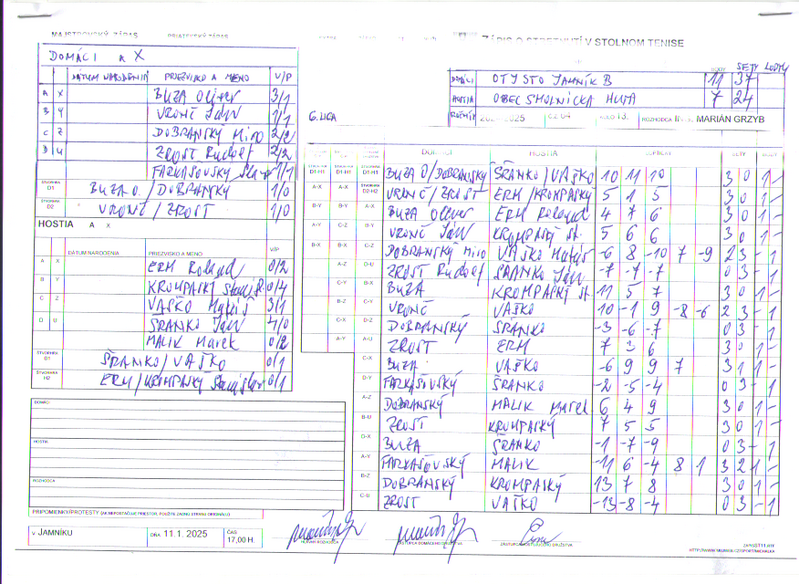 MAJSTROVSKÝ ZÁPAS PRIATEĽSKÝ ZÁPAS ZÁPIS O STRETNUTÍ V STOLNOM TENISE
DOMÁCI A X
SETY LOPTY
DÁTUM NARODENIA PRIEZVISKO A MENO V/P
DOMÁCI OTJ STO JAMNÍK B 11 37
HOSTIA OBEC SMOLNÍCKA HUTA 7 24
6. LIGA 2025 ROZHODCA MARIÁN GRZYB
A X BUZA Oliver 3/1
B Y VRONČ Ján 1/1
C Z DOBRANSKÝ Miro 2/2
D U ZROST Rudolf 2/2
FARKAŠOVSKÝ 1/1
D1 BUZA O/DOBRANSKÝ 1/0
D2 VRONČ/ZROST 1/0
HOSTIA A X
DÁTUM NARODENIA PRIEZVISKO A MENO V/P
A X ERM Roland 0/2
B Y KROMPASKÝ 0/4
C Z VAŠKO Matúš 3/1
D U ŠRANKO Ján 4/0
MALIK Marek 0/2
D1 ŠRANKO/VAŠKO 0/1
ERM/KROMPASKÝ Stanislav 0/1
DOMÁCI HOSTIA
BUZA O/DOBRANSKÝ ŠRANKO/VAŠKO 10 11 10 3 0 1 -
VRONČ/ZROST ERM/KROMPASKÝ 5 1 5 3 0 1 -
BUZA Oliver ERM Roland 4 7 6 3 0 1 -
VRONČ Ján KROMPASKÝ St. 5 6 6 3 0 1 -
DOBRANSKÝ Miro VAŠKO Matúš -6 8 -10 7 -9 2 3 - 1
ZROST Rudolf ŠRANKO Ján -7 -7 -7 0 3 - 1
BUZA KROMPASKÝ St. 11 5 7 3 0 1 -
VRONČ VAŠKO 10 -1 9 -8 -6 2 3 - 1
DOBRANSKÝ ŠRANKO -3 -6 -7 0 3 - 1
ZROST ERM 7 3 6 3 0 1 -
BUZA VAŠKO -6 9 9 7 3 1 1 -
FARKAŠOVSKÝ ŠRANKO -2 -5 -4 0 3 - 1
DOBRANSKÝ MALIK Marek 6 4 9 3 0 1 -
ZROST KROMPASKÝ 7 5 5 3 0 1 -
BUZA ŠRANKO -1 -7 -9 0 3 - 1
FARKAŠOVSKÝ MALIK -11 6 -4 8 1 3 2 1 -
DOBRANSKÝ KROMPASKÝ 13 7 8 3 0 1 -
ZROST VAŠKO -13 -8 -4 0 3 - 1
DOMÁCI
HOSTIA
ROZHODCA
PRIPOMIENKY/PROTESTY
V JAMNÍKU DŇA 11.1. 2025 ČAS 17,00 H.